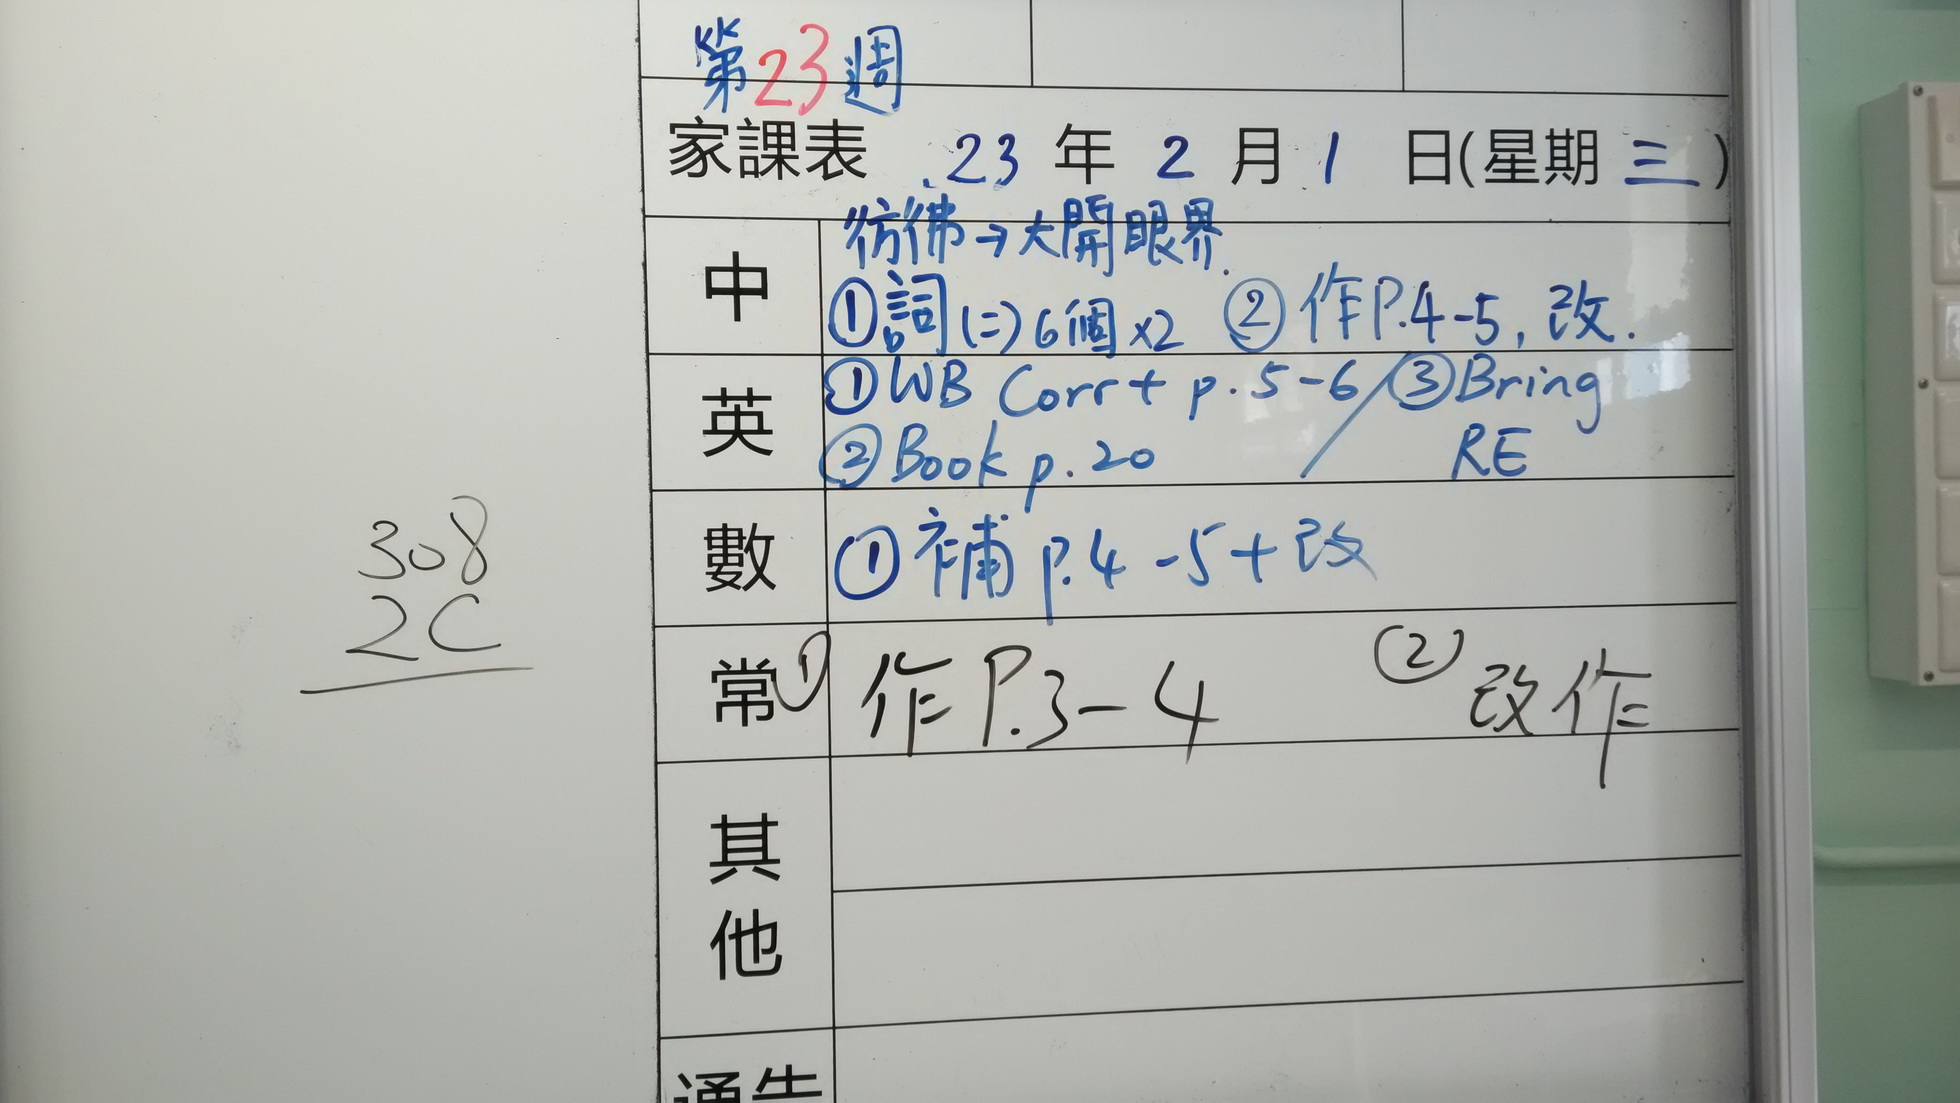 第23週
家課表 23年2月1日(星期三)
彷彿→大開眼界
中 ①詞(二)6個×2 ②作P.4-5, 改.
英 ①WB Corr+ p.5-6 / ③Bring
②Book p.20 RE
數 ①補p.4-5+改
常 ①作P.3-4 ②改作
308
2C
其他
通告